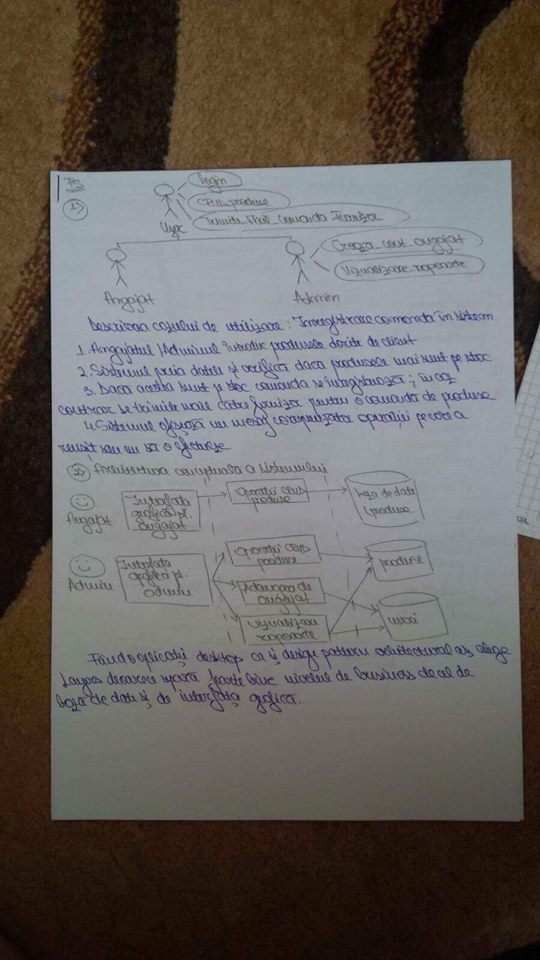 PS
1)
login
CRUD produse
Trimite Mail Comanda Furnizor
User
Creaza cont angajat
Vizualizare rapoarte
Angajat
Admin
Descrierea cazului de utilizare: Inregistrare comanda în sistem
1. Angajatul/Adminul introduc produsele dorite de client
2. Sistemul preia datele și verifică daca produsele mai sunt pe stoc
3. Daca acestea sunt pe stoc comanda se înregistrează; în caz
contrar se trimite mail către furnizor pentru o comanda de produse
4. Sistemul afișează un mesaj corespunzător operației pe care a
reușit sau nu sa o efectueze
2) Arhitectura conceptuala a sistemului
Angajat
Interfata grafică pt. angajat
Operatii CRUD produse
baza de date produse
Admin
Interfata grafica pt. admin
Operatii CRUD produse
produse
Adaugare de angajat
useri
Vizualizare rapoarte
Fiind o aplicație desktop ca și design pattern arhitectural aș alege
Layers deoarece separă foarte bine nivelul de business de cel de
baza de date și de interfață grafică.